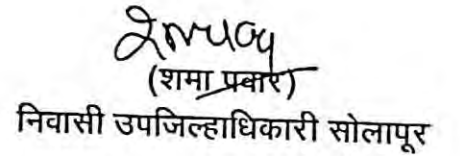 (शमा पवार)
निवासी उपजिल्हाधिकारी सोलापूर